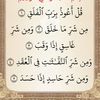 قُلْ أَعُوذُ بِرَبِّ الْفَلَقِ ١
مِن شَرِّ مَا خَلَقَ ٢ وَمِن شَرِّ
غَاسِقٍ إِذَا وَقَبَ ٣
وَمِن شَرِّ النَّفَّاثَاتِ فِي الْعُقَدِ ٤
وَمِن شَرِّ حَاسِدٍ إِذَا حَسَدَ ٥